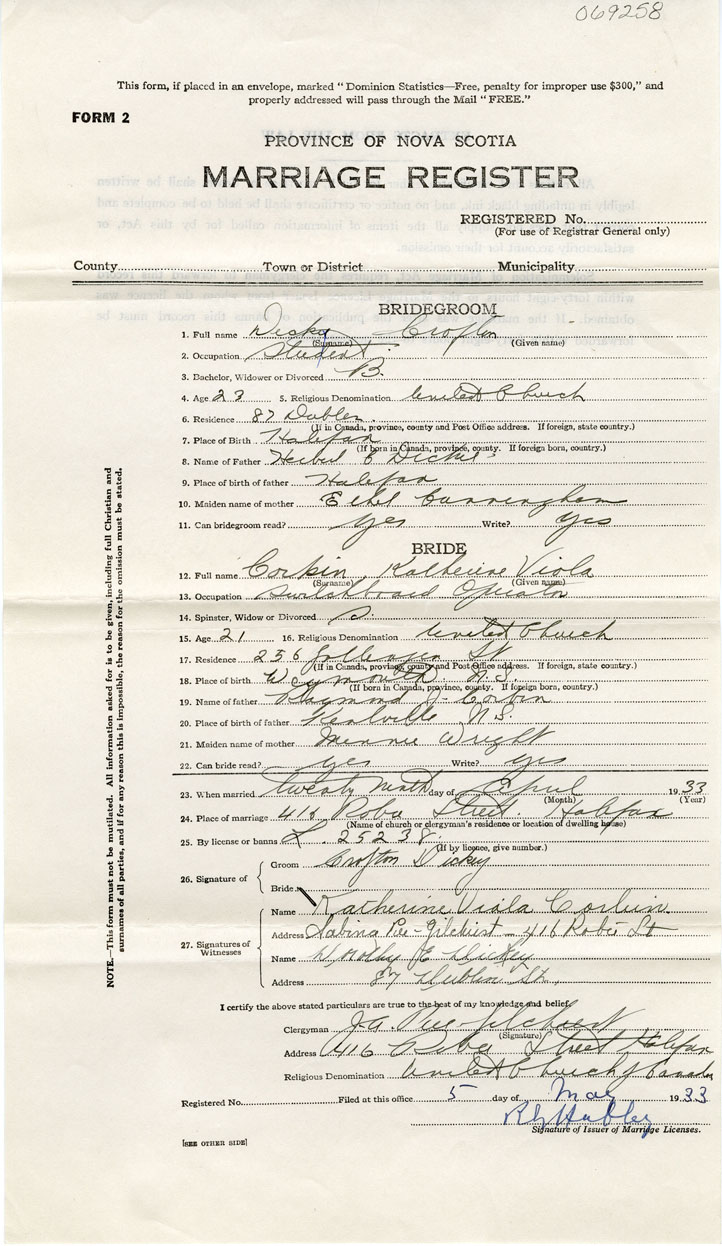 069258
This form, if placed in an envelope, marked “Dominion Statistics—Free, penalty for improper use $300,” and
properly addressed will pass through the Mail “FREE.”
FORM 2
PROVINCE OF NOVA SCOTIA
MARRIAGE REGISTER
REGISTERED No.
(For use of Registrar General only)
County Town or District Municipality
BRIDEGROOM
1. Full name Dickey Crofton
(Surname) (Given name)
2. Occupation Student
3. Bachelor, Widower or Divorced B.
4. Age 23 5. Religious Denomination United Church
6. Residence 87 Dublin
(If in Canada, province, county and Post Office address. If foreign, state country.)
7. Place of Birth Halifax
(If born in Canada, province, county. If foreign born, country.)
8. Name of Father
9. Place of birth of father Halifax
10. Maiden name of mother Ethel Cunningham
11. Can bridegroom read? yes Write? yes
BRIDE
12. Full name Corbin Katherine Viola
(Surname) (Given name)
13. Occupation Switchboard Operator
14. Spinster, Widow or Divorced S.
15. Age 21 16. Religious Denomination United Church
17. Residence 256 St
(If in Canada, province, county and Post Office address. If foreign, state country.)
18. Place of birth Weymouth N.S.
(If born in Canada, province, county. If foreign born, country.)
19. Name of father Raymond J. Corbin
20. Place of birth of father Kentville N.S.
21. Maiden name of mother Minnie Wright
22. Can bride read? yes Write? yes
23. When married twenty ninth day of April 1933
(Month) (Year)
24. Place of marriage 416 Robie Street. Halifax
(Name of church or clergyman's residence or location of dwelling house)
25. By license or banns L. 25238.
(If by licence, give number.)
26. Signature of
Groom Crofton Dickey
Bride
27. Signatures of Witnesses
Name Katherine Viola Corbin
Address Sabina Pue-Gilchrist – 416 Robie St
Name Dickey
Address 87 Dublin St.,
I certify the above stated particulars are true to the best of my knowledge and belief.
Clergyman J.A. Pue-Gilchrist
(Signature)
Address 416 Robie Street Halifax
Religious Denomination United Church of Canada
Registered No. Filed at this office 5 day of May 1933
Signature of Issuer of Marriage Licenses.
[SEE OTHER SIDE]
NOTE.—This form must not be mutilated. All information asked for is to be given, including full Christian and
surnames of all parties, and if for any reason this is impossible, the reason for the omission must be stated.